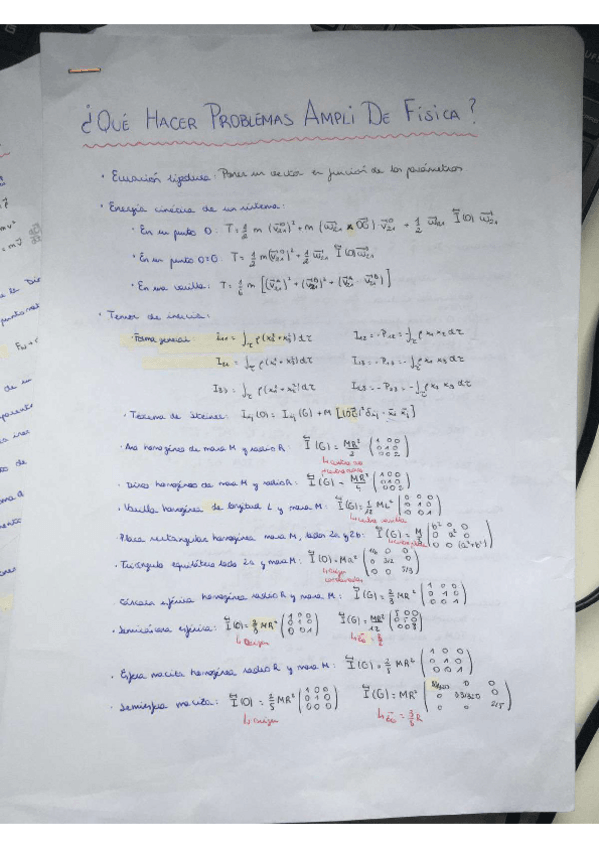 ¿QUÉ HACER PROBLEMAS AMPLI DE FÍSICA?
· Ecuación ligadura: Poner un vector en función de los parámetros
· Energía cinética de un sistema:
· En un punto O: T = 1/2 m (v⃗₂₁⁰)² + m (ω⃗₂₁ × OG⃗) v⃗₂₁⁰ + 1/2 ω⃗₂₁ I(O) ω⃗₂₁
· En un punto O=G: T = 1/2 m (v⃗₂₁⁰)² + 1/2 ω⃗₂₁ I(O) ω⃗₂₁
· En una varilla: T = 1/6 m [(v⃗₂₁ᴬ)² + (v⃗₂₁ᴮ)² + (v⃗₂₁ᴬ · v⃗₂₁ᴮ)]
· Tensor de inercia:
Forma general: I₁₁ = ∫ ρ(x₂² + x₃²) dτ I₁₂ = -P₁₂ = -∫ ρ x₁ x₂ dτ
I₂₂ = ∫ ρ(x₁² + x₃²) dτ I₁₃ = -P₁₃ = -∫ ρ x₁ x₃ dτ
I₃₃ = ∫ ρ(x₁² + x₂²) dτ I₂₃ = -P₂₃ = -∫ ρ x₂ x₃ dτ
· Teorema de Steiner: Iᵢⱼ(O) = Iᵢⱼ(G) + M [|OG|² δᵢⱼ - xᵢ xⱼ]
· Aro homogéneo de masa M y radio R: I(G) = MR²/2 (1 0 0 / 0 1 0 / 0 0 2)
· Disco homogéneo de masa M y radio R: I(G) = MR²/4 (1 0 0 / 0 1 0 / 0 0 2)
· Varilla homogénea de longitud L y masa M: I(G) = 1/12 ML² (0 0 0 / 0 1 0 / 0 0 1)
↳ centro varilla
· Placa rectangular homogénea masa M, lados 2a y 2b: I(G) = M/3 (b² 0 0 / 0 a² 0 / 0 0 (a²+b²))
· Triángulo equilátero lado 2a y masa M: I(O) = Ma²
↳ Origen coordenadas
· Cáscara esférica homogénea radio R y masa M: I(G) = 2/3 MR² (1 0 0 / 0 1 0 / 0 0 1)
· Semicáscara esférica: I(O) = 2/3 MR² (1 0 0 / 0 1 0 / 0 0 1) I(G) = MR²/12 (5 0 0 / 0 5 0 / 0 0 8)
↳ Origen
· Esfera maciza homogénea radio R y masa M: I(G) = 2/5 MR² (1 0 0 / 0 1 0 / 0 0 1)
· Semiesfera maciza: I(O) = 2/5 MR² I(G) = MR²
↳ Origen